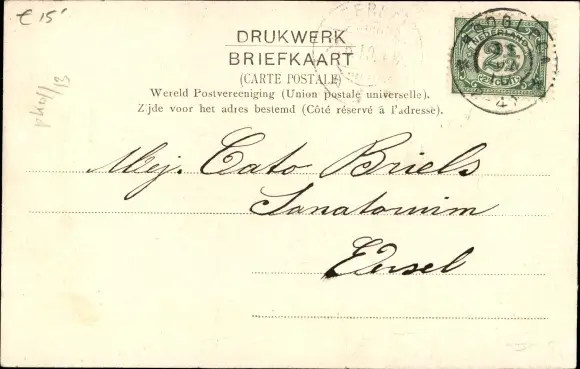 € 15
DRUKWERK
BRIEFKAART
(CARTE POSTALE)
Wereld Postvereeniging (Union postale universelle).
Zijde voor het adres bestemd (Côté réservé à l'adresse).
NEDERLAND
2½
Mej. Cato Briels
Sanatorium
Eersel